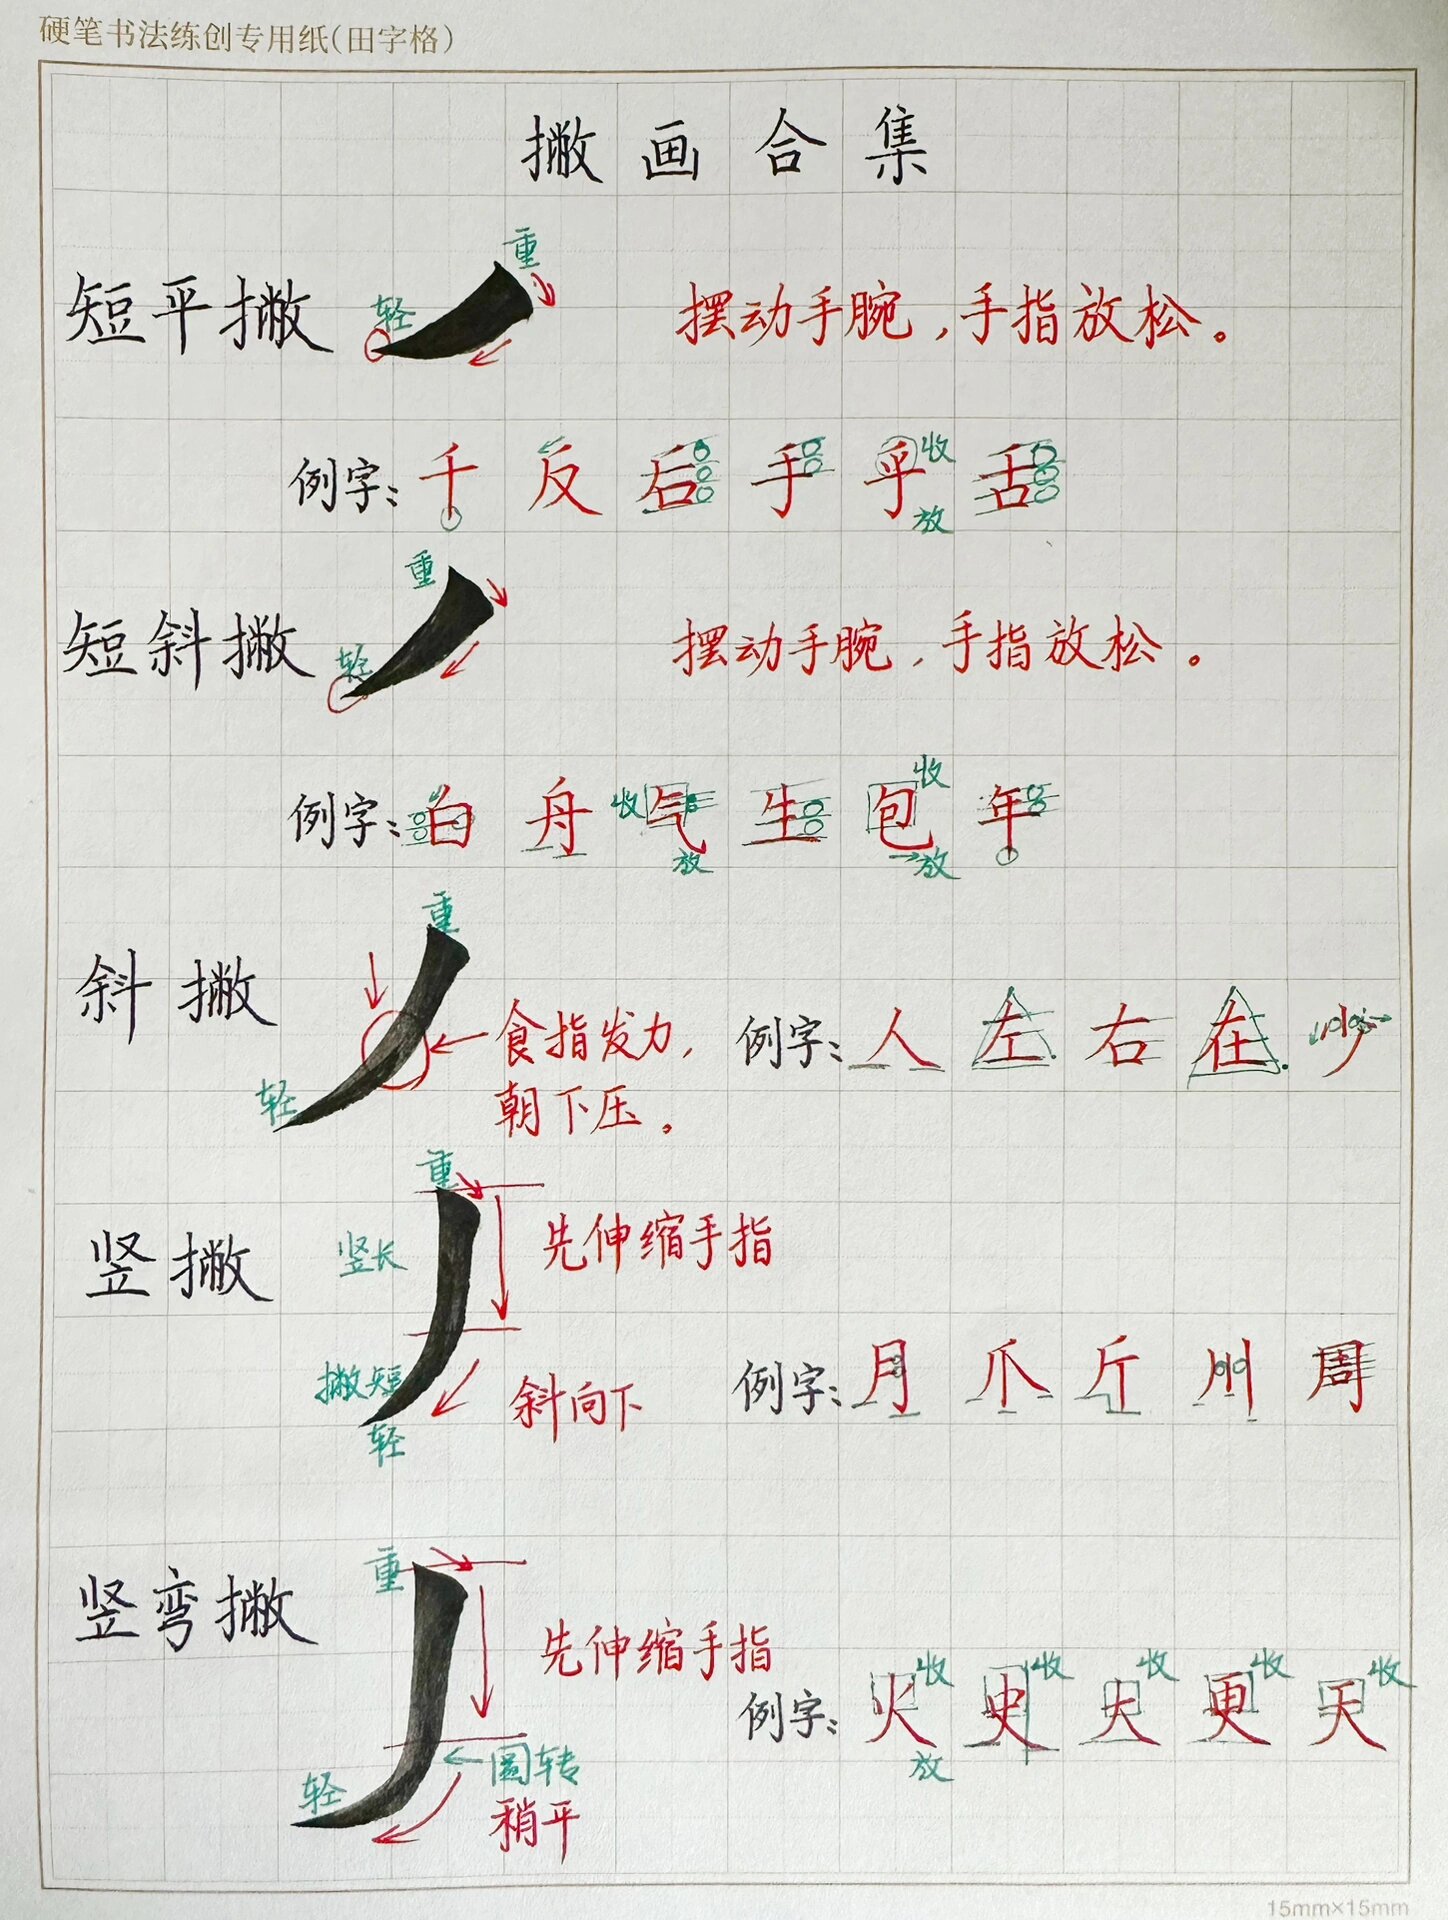 硬笔书法练创专用纸(田字格)
撇画合集
重
短平撇 轻 摆动手腕，手指放松。
例字：千 反 后 手 乎 舌
收
放
重
短斜撇 轻 摆动手腕，手指放松。
收
例字：白 舟 收 气 生 包 年
放 放
重
斜撇
食指发力， 例字：人 左 右 在 少
轻 朝下压。
重
竖撇 竖长 先伸缩手指
撇短 斜向下 例字：月 爪 斤 川 周
轻
重
竖弯撇 先伸缩手指
收 收 收 收 收
例字：火 史 大 更 天
放
圆转
轻 稍平
15mm×15mm